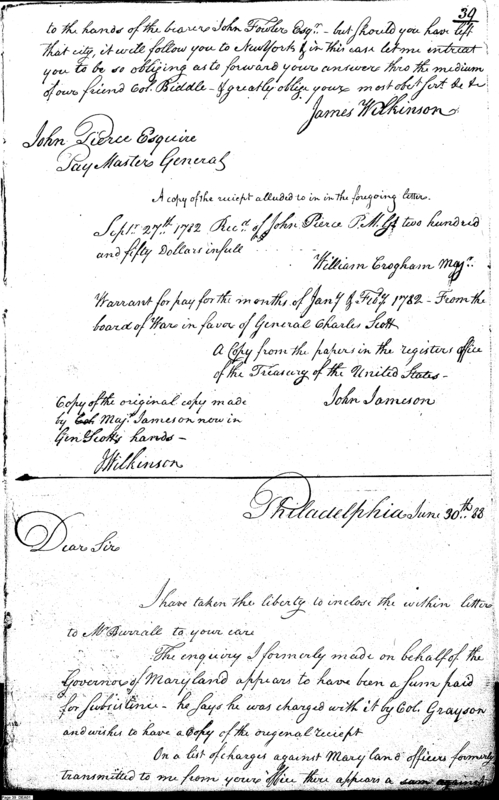 39
to the hands of the bearer John Fowler Esqr. - but should you have left
that city, it will follow you to New York & in this case let me intreat
you to be so obliging as to forward your answer thro the medium
of our friend Col. Biddle - & greatly oblige your most obet. Sert. &c &c
James Wilkinson
John Pierce Esquire
Pay Master General
A copy of the reciept alluded to in in the foregoing letter.
Sept. 27th. 1782 Recd. of John Pierce P. M. Gl two hundred
and fifty Dollars in full
William Crogham Majr.
Warrant for pay for the months of Jany & Feby. 1782 - From the
board of War in favor of General Charles Scott
A Copy from the papers in the registers office
of the Treasury of the United States -
John Jameson
Copy of the original copy made
by Col. Majr. Jameson now in
Genl Scotts hands -
J Wilkinson
Philadelphia June 30th. 88
Dear Sir
I have taken the liberty to inclose the within letter
to Mr Burrall to your care
The enquiry I formerly made on behalf of the
Governor of Maryland appears to have been a sum paid
for Subsistence - he says he was charged with it by Col. Grayson
and wishes to have a Copy of the origenal reciept
On a list of charges against Maryland officers formerly
transmitted to me from your office there appears a sum against